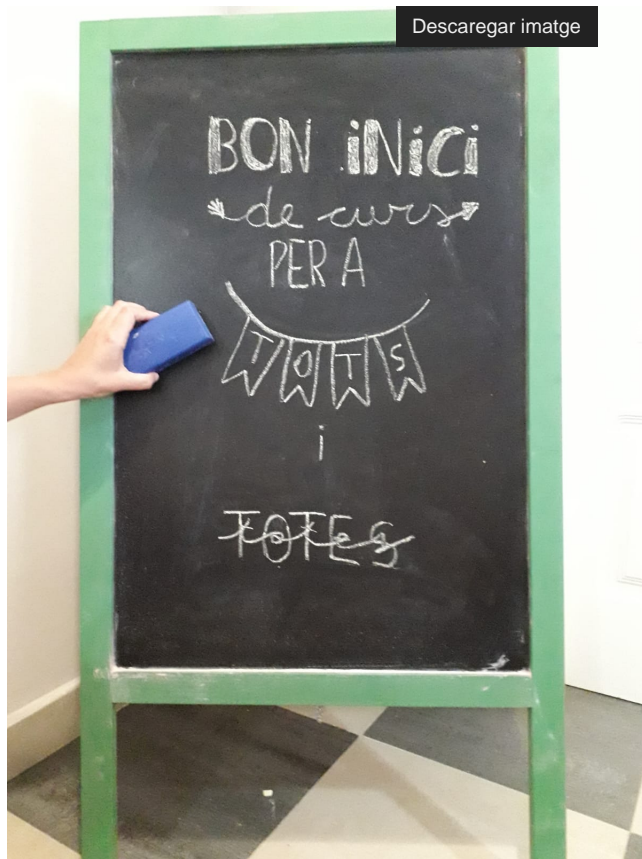 Descaregar imatge
BON iNiCi
de curs
PER A
TOTS
i
TOTES